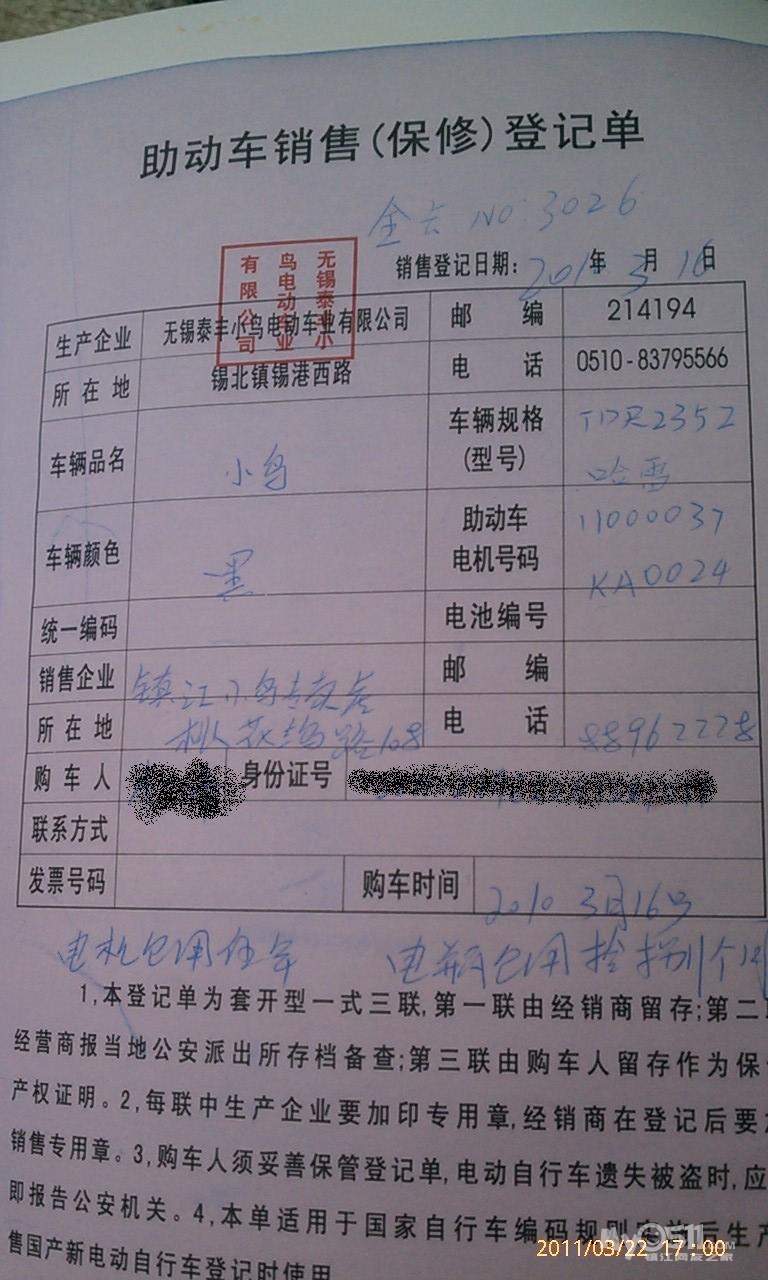 助动车销售(保修)登记单
NO:3026
销售登记日期: 201 年 3 月 16 日
无锡泰丰小鸟电动车业有限公司
生产企业 无锡泰丰小鸟电动车业有限公司 邮 编 214194
所在地 锡北镇锡港西路 电 话 0510-83795566
车辆品名 小鸟 车辆规格(型号) TDR235Z
哈雷
车辆颜色 黑 助动车电机号码 11000037
KA0024
统一编码 电池编号
销售企业 镇江小鸟专卖店 邮 编
所在地 桃花坞路108 电 话 88962228
购车人 身份证号
联系方式
发票号码 购车时间 2010 3月16号
电机包用 年 电瓶包用 个月
1,本登记单为套开型一式三联,第一联由经销商留存;第二
经营商报当地公安派出所存档备查;第三联由购车人留存作为保
产权证明。2,每联中生产企业要加印专用章,经销商在登记后要
销售专用章。3,购车人须妥善保管登记单,电动自行车遗失被盗时,应
即报告公安机关。4,本单适用于国家自行车编码规则 后生产
售国产新电动自行车登记时使用
2011/03/22 17:00
0511
镇江网友之家